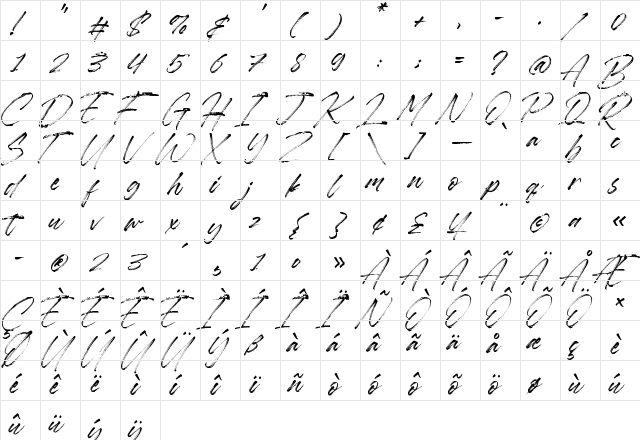 ! " # $ % & ' ( ) * + , - . / 0
1 2 3 4 5 6 7 8 9 : ; = ? @ A B
C D E F G H I J K L M N O P Q R
S T U V W X Y Z [ \ ] — ` a b c
d e f g h i j k l m n o p q r s
t u v w x y z { } ¢ £ ¥ ¨ © ª «
- ® 2 3 ´ ¸ 1 º » À Á Â Ã Ä Å Æ
Ç È É Ê Ë Ì Í Î Ï Ñ Ò Ó Ô Õ Ö ×
Ø Ù Ú Û Ü Ý ß à á â ã ä å æ ç è
é ê ë ì í î ï ñ ò ó ô õ ö ø ù ú
û ü ý ÿ